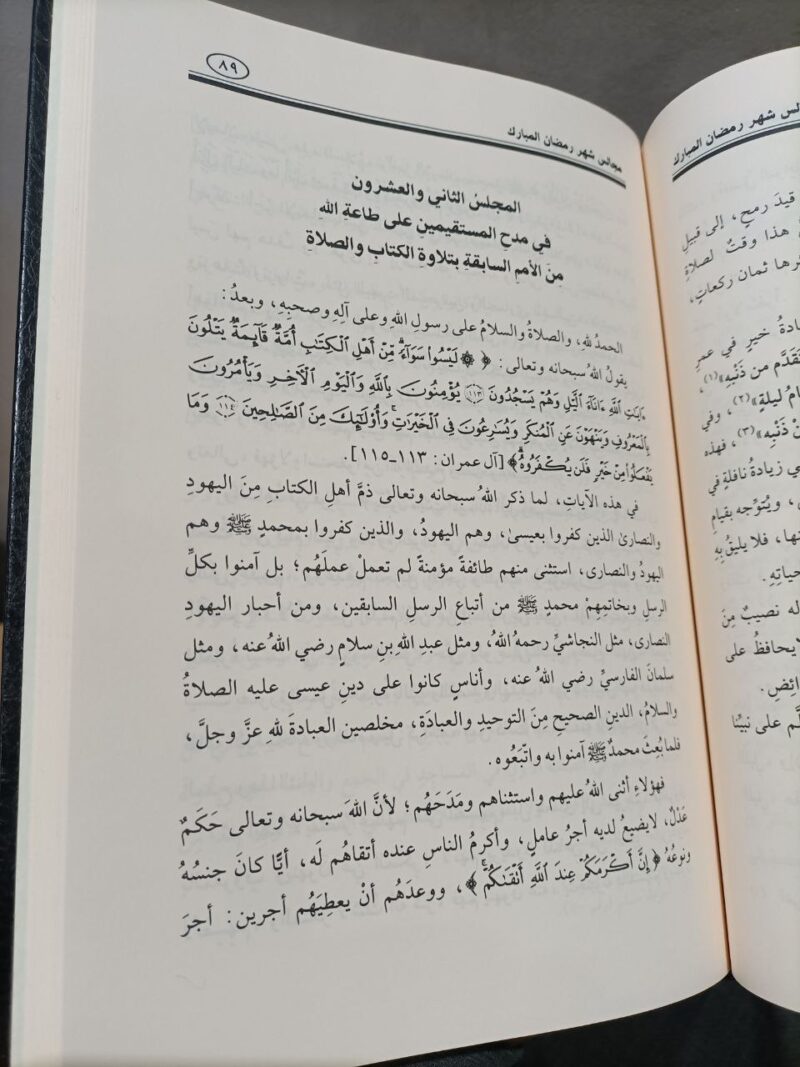 مجالس شهر رمضان المبارك
٨٩
المجلسُ الثاني والعشرون
في مدحِ المستقيمين على طاعةِ اللهِ
مِنَ الأممِ السابقةِ بتلاوةِ الكتابِ والصلاةِ
الحمدُ للهِ، والصلاةُ والسلامُ على رسولِ اللهِ وعلى آلِهِ وصحبِهِ، وبعدُ:
يقولُ اللهُ سبحانه وتعالى: ﴿ ۞ لَيْسُوا سَوَآءً ۗ مِّنْ أَهْلِ ٱلْكِتَٰبِ أُمَّةٌ قَآئِمَةٌ يَتْلُونَ
ءَايَٰتِ ٱللَّهِ ءَانَآءَ ٱلَّيْلِ وَهُمْ يَسْجُدُونَ ١١٣ يُؤْمِنُونَ بِٱللَّهِ وَٱلْيَوْمِ ٱلْأَخِرِ وَيَأْمُرُونَ
بِٱلْمَعْرُوفِ وَيَنْهَوْنَ عَنِ ٱلْمُنكَرِ وَيُسَٰرِعُونَ فِى ٱلْخَيْرَٰتِ وَأُوْلَٰٓئِكَ مِنَ ٱلصَّٰلِحِينَ ١١٤ وَمَا
يَفْعَلُوا مِنْ خَيْرٍ فَلَن يُكْفَرُوهُ﴾ [آل عمران: ١١٣-١١٥].
في هذه الآياتِ، لما ذكر اللهُ سبحانه وتعالى ذمَّ أهلِ الكتابِ مِنَ اليهودِ
والنصارىٰ الذين كفروا بعيسىٰ، وهم اليهودُ، والذين كفروا بمحمدٍ ﷺ وهم
اليهودُ والنصارى، استثنى منهم طائفةً مؤمنةً لم تعملْ عملَهُم؛ بل آمنوا بكلِّ
الرسلِ وبخاتمِهِمْ محمدٍ ﷺ من أتباعِ الرسلِ السابقين، ومن أحبارِ اليهودِ
النصارى، مثل النجاشيِّ رحمهُ اللهُ، ومثل عبدِ اللهِ بنِ سلامٍ رضي اللهُ عنه، ومثل
سلمانَ الفارسيِّ رضي اللهُ عنه، وأناسٍ كانوا على دينِ عيسى عليه الصلاةُ
والسلامُ، الدينِ الصحيحِ مِنَ التوحيدِ والعبادَةِ، مخلصين العبادةَ للهِ عزَّ وجلَّ،
فلما بُعِثَ محمدٌ ﷺ آمنوا به واتّبَعُوه.
فهؤلاءِ أثنى اللهُ عليهم واستثناهم ومَدَحَهُم؛ لأنَّ اللهَ سبحانه وتعالى حَكَمٌ
عَدْلٌ، لا يضيعُ لديه أجرُ عاملٍ، وأكرمُ الناسِ عنده أتقاهُم لَه، أيًّا كانَ جنسُهُ
ونوعُهُ ﴿إِنَّ أَكْرَمَكُمْ عِندَ ٱللَّهِ أَتْقَىٰكُمْ﴾، ووعدَهُم أنْ يعطيَهُم أجرين: أجرَ
مجالس شهر رمضان المبارك
قيدَ رمحٍ، إلى قبيلِ
هذا وقتٌ لصلاةِ
ثمان ركعاتٍ،
خيرٍ في عمرِ
تقدَّم من ذَنْبِه»(١)،
ليلةٍ»(٢)، وفي
ذَنْبِه»(٣)، فهذه
زيادةُ نافلةٍ في
ويُتوِّجه بقيامِ
فلا يليقُ بِهِ
حياتِهِ.
له نصيبٌ مِنَ
لا يحافظُ على
على نبيِّنا